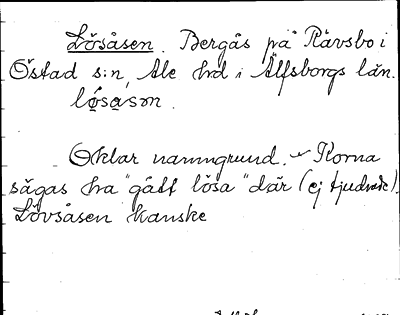 Lösåsen. Bergås på Rävsbo i
Östad s:n, Ale hd i Älfsborgs län.
lǫ́sasən.
Oklar namngrund. – Korna
sägas ha "gått lösa" där (ej tjudrade).
Lövsåsen kanske